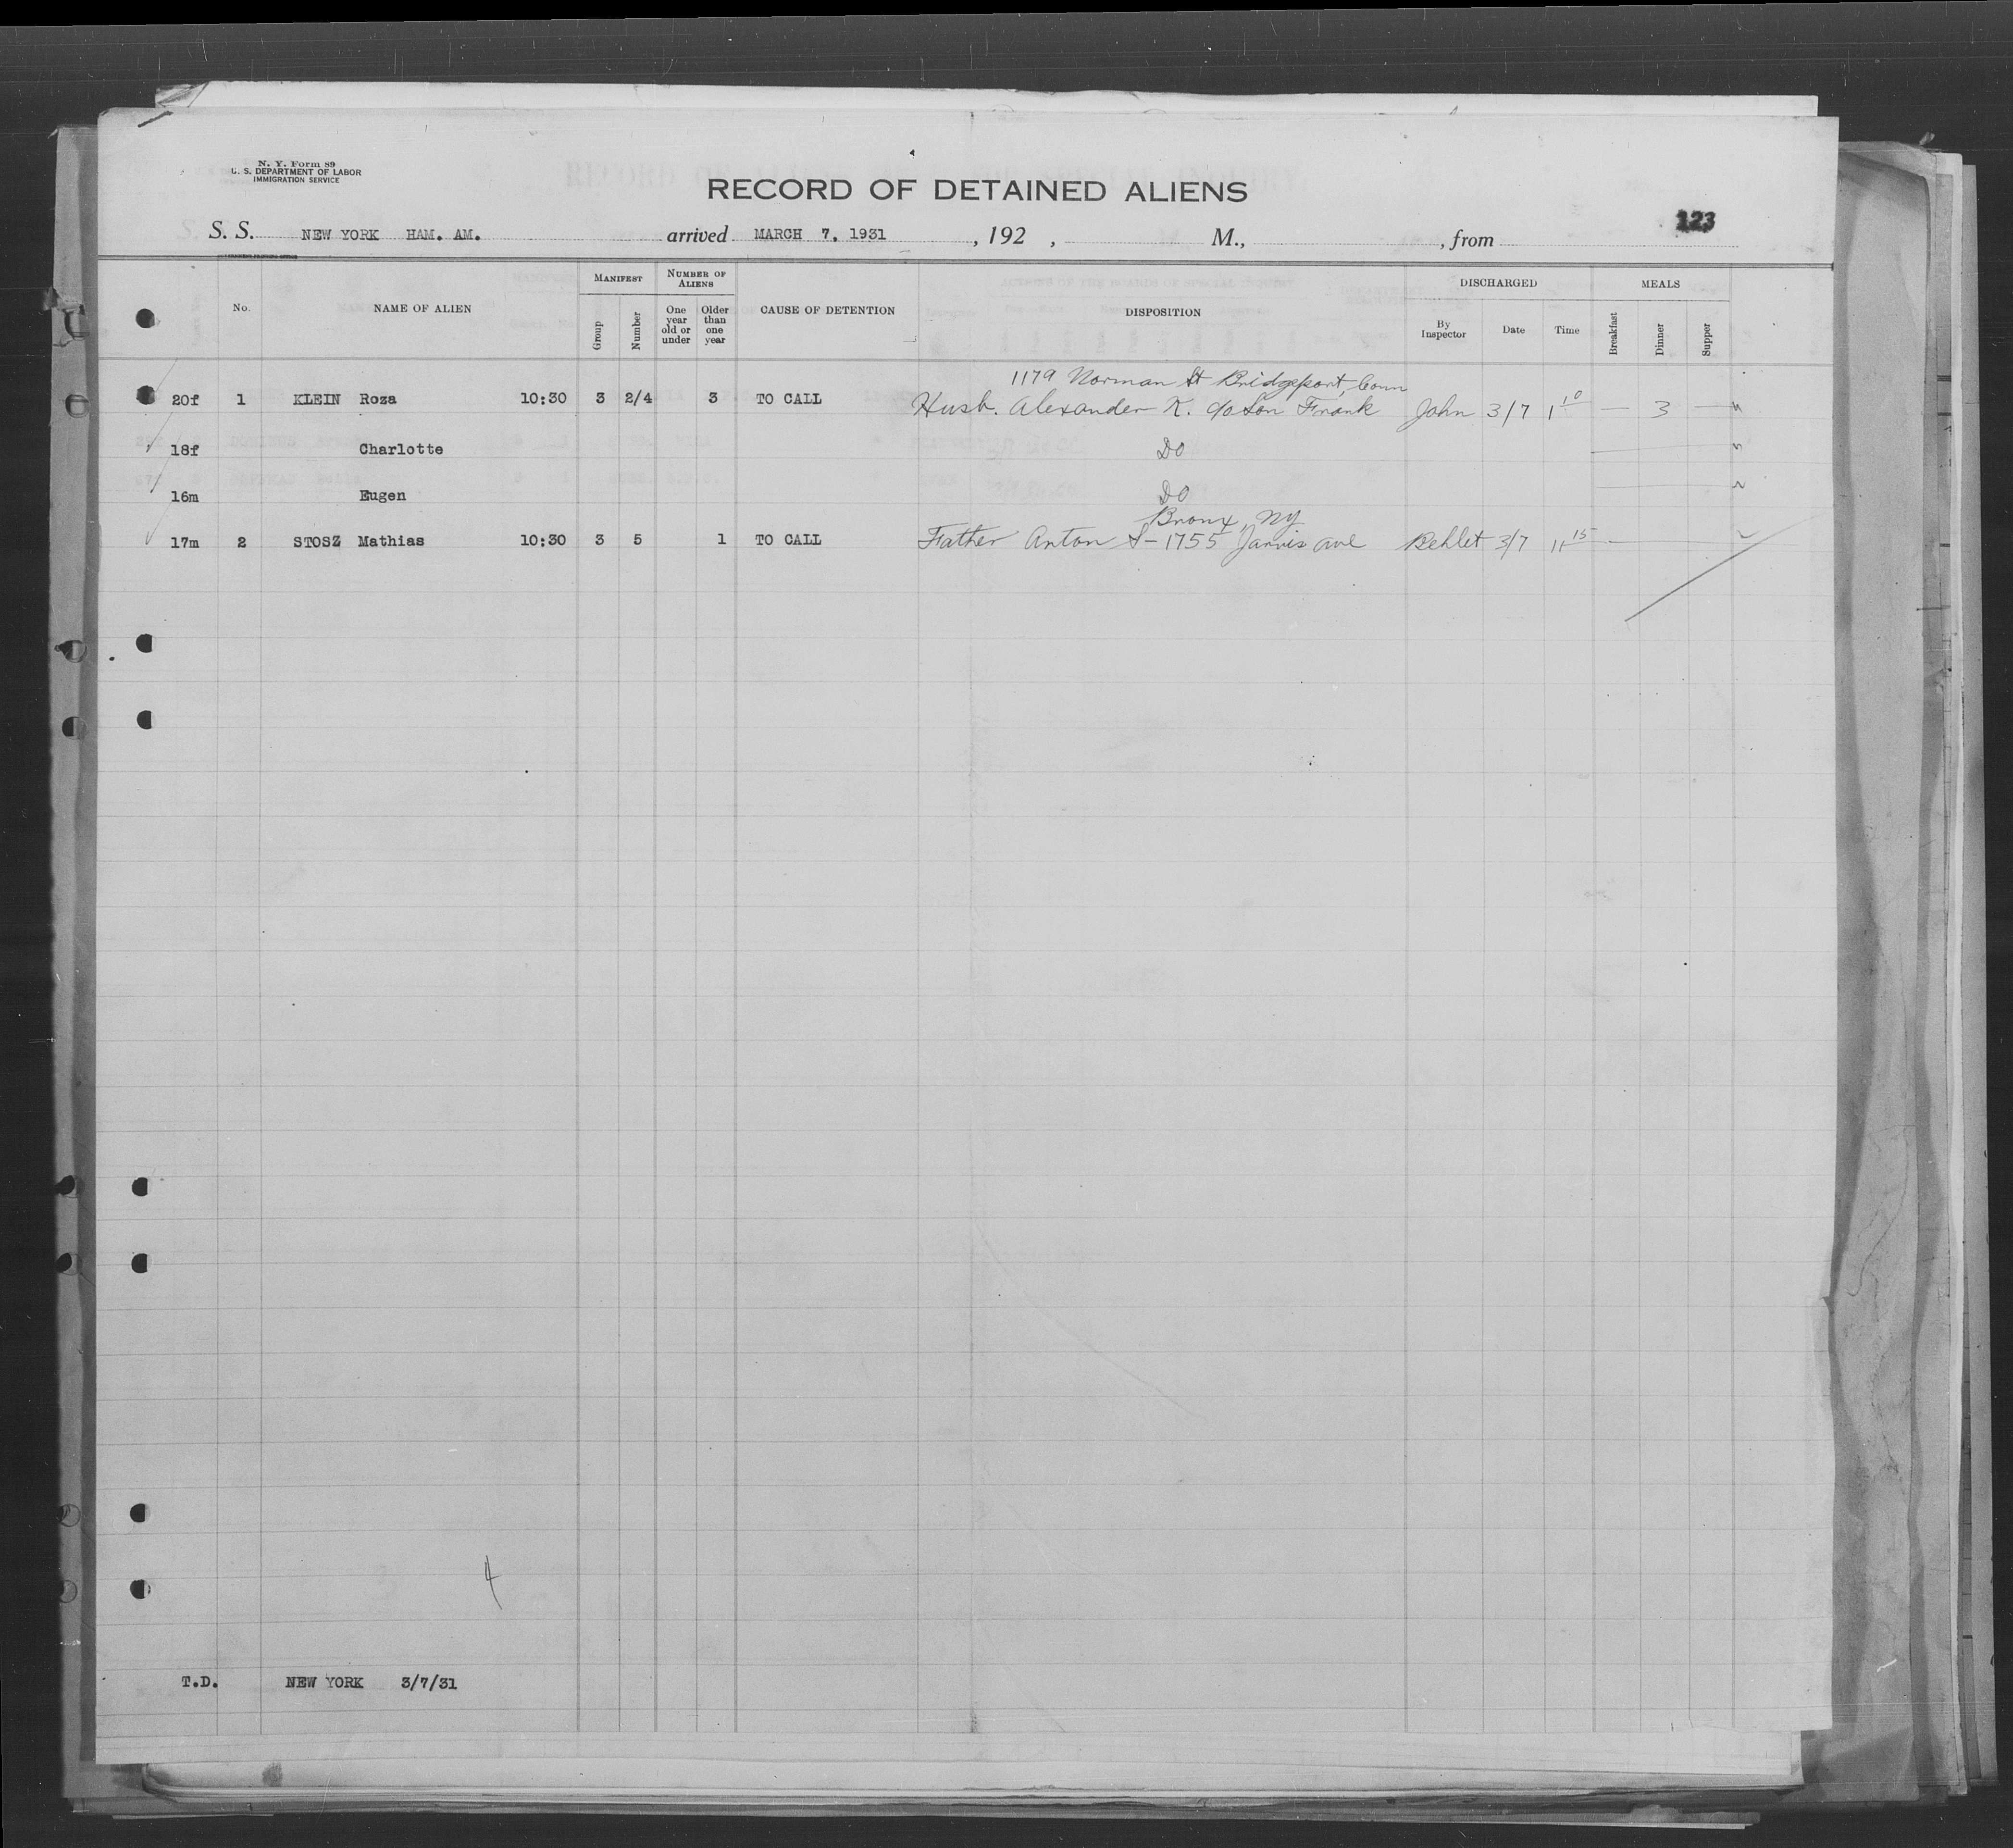 N. Y. Form 89
U. S. DEPARTMENT OF LABOR
IMMIGRATION SERVICE
RECORD OF DETAINED ALIENS
123
S. S. NEW YORK HAM. AM. arrived MARCH 7, 1931 , 192 , M., , from
No. NAME OF ALIEN MANIFEST Group Number NUMBER OF ALIENS One year old or under Older than one year CAUSE OF DETENTION DISPOSITION DISCHARGED By Inspector Date Time MEALS Breakfast Dinner Supper
1179 Norman St Bridgeport, Conn
20f 1 KLEIN Roza 10:30 3 2/4 3 TO CALL Husb. Alexander K. c/o Son Frank John 3/7 1 10 — 3 —
18f Charlotte DO
16m Eugen DO
Bronx, NY
17m 2 STOSZ Mathias 10:30 3 5 1 TO CALL Father Anton S- 1755 Jarvis Ave 3/7 11 15
4
T.D. NEW YORK 3/7/31